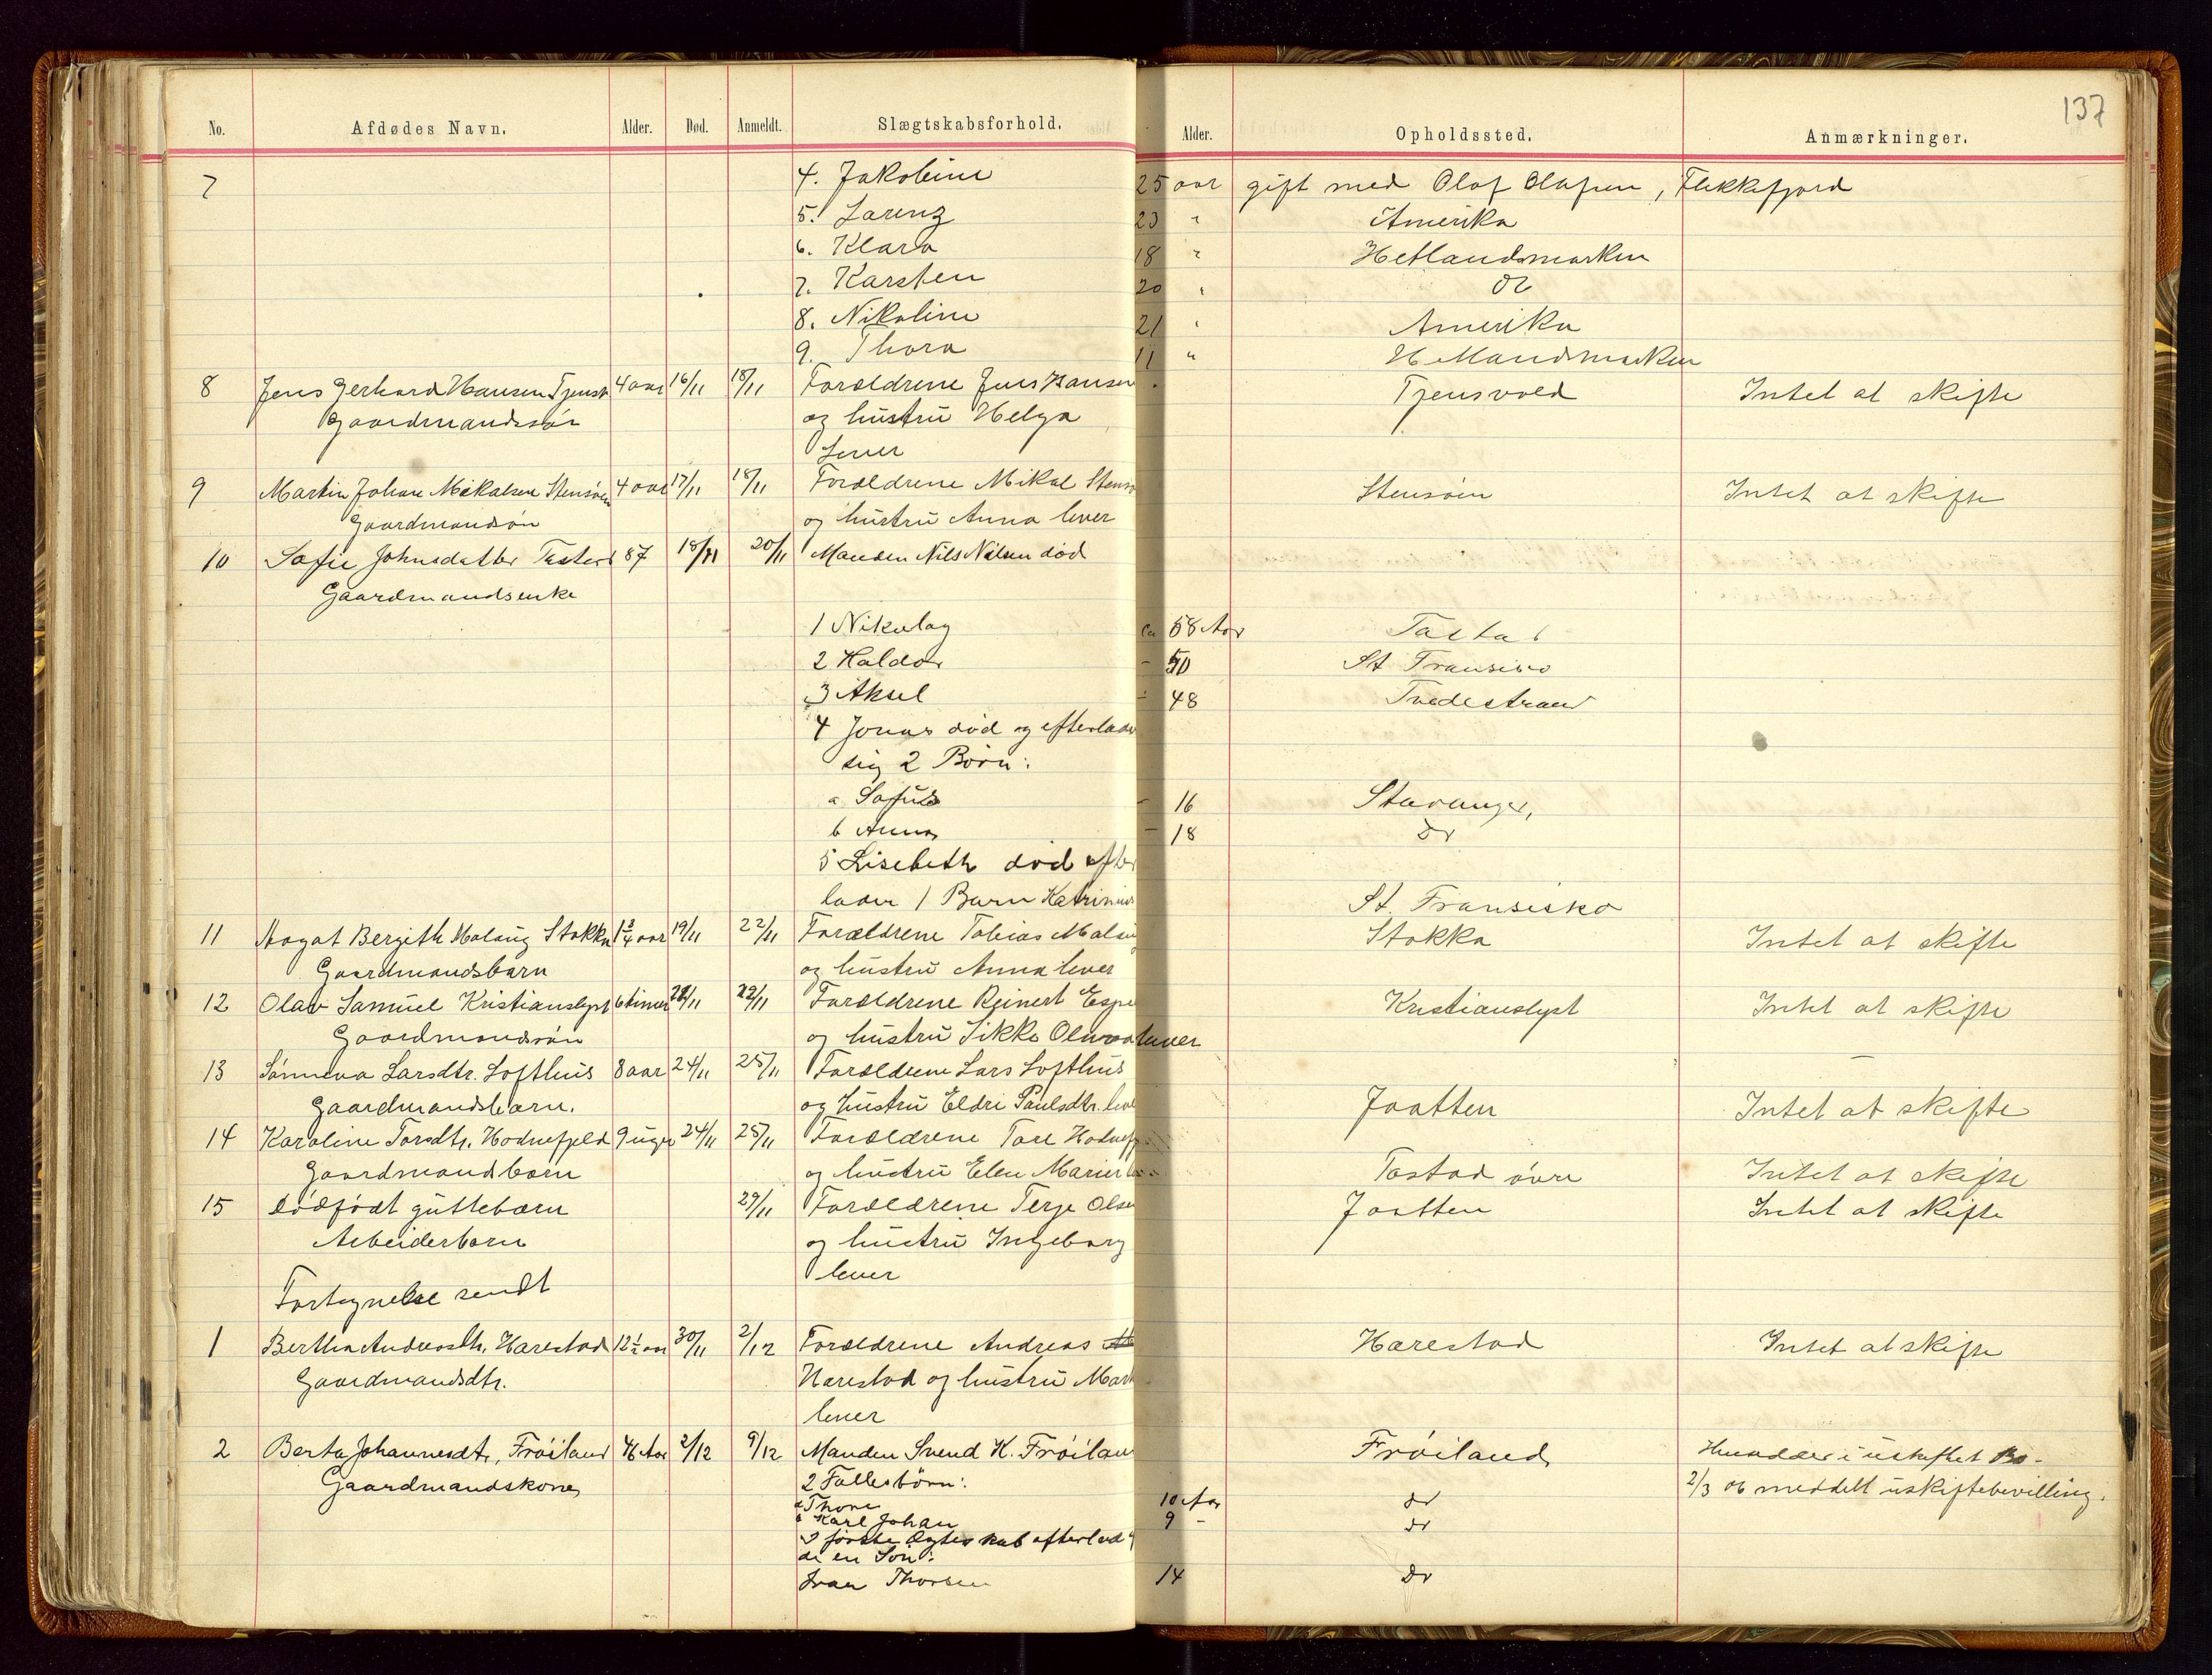 137
No. Afdødes Navn. Alder. Død. Anmeldt. Slægtskabsforhold. Alder. Opholdssted. Anmærkninger.
7 4. Jakobine 25 aar gift med Olaf Olafsen, Flekkefjord
5. Lorenz 23 " Amerika
6. Klara 18 " Hetlandsmarken
7. Karsten 20 " do
8. Nikoline 21 " Amerika
9. Thora 11 " Hetlandsmarken
8 Jens Gerhard Hansen Tjensv 4 aar 16/11 18/11 Forældrene Jens Hansen Tjensvold Intet at skifte
Gaardmandssøn og hustru Helga
lever
9 Martin Johan Mikalsen Stensøen 4 aar 17/11 18/11 Forældrene Mikal Stensø Stensøen Intet at skifte
Gaardmandsøn og hustru Anna lever
10 Sofie Johnsdatter Tastad 87 18/11 20/11 Manden Nils Nilsen død
Gaardmandsenke
1 Nikolay ca 58 Aar Tastad
2 Haldor - 50 St Fransisco
3 Aksel - 48 Tvedestrand
4 Jonas død og efterlader
sig 2 Børn:
a Sofus - 16 Stavanger,
b Anna - 18 do
5 Lisebeth død efter
lader 1 Barn Katrinius St. Fransisko
11 Aagot Bergith Malaug Stokka 1 3/4 aar 19/11 22/11 Forældrene Tobias Stokka Intet at skifte
Gaardmandsbarn og hustru Anna lever
12 Olav Samuel Kristianslyst 6 timer 22/11 22/11 Forældrene Reinert Espe Kristianslyst Intet at skifte
Gaardmandsøn og hustru lever
13 Sønneva Larsdtr. Lofthus 8 aar 24/11 25/11 Forældrene Lars Lofthus
Gaardmandsbarn. og hustru Eldri Paulsdtr. leve Jaatten Intet at skifte
14 Karoline Torsdtr. Hodnefjeld 9 uger 24/11 25/11 Forældrene Tore Hodnefj
Gaardmandsbarn og hustru Elen Marie Tastad øvre Intet at skifte
15 Dødfødt guttebarn 29/11 Forældrene Terje Olsen Jaatten Intet at skifte
Arbeiderbarn og hustru Ingeborg
lever
Fortegnelse sendt
1 Bertha Andreasdtr. Harestad 12 1/2 aar 30/11 2/12 Forældrene Andreas Harestad Intet at skifte
Gaardmandsdtr. Harestad og hustru Mart
lever
2 Berta Johannesdtr, Frøiland 46 Aar 2/12 9/12 Manden Svend K. Frøilan Frøiland Hensidder i uskiftet Bo -
Gaardmandskone 2 Fællesbørn: 2/3 06 meddelt uskiftebevilling.
a Thore 10 Aar do
b Karl Johan 9 - do
I første Ægteskab efterlod
de en Søn:
Ivar Thorsen 14 do